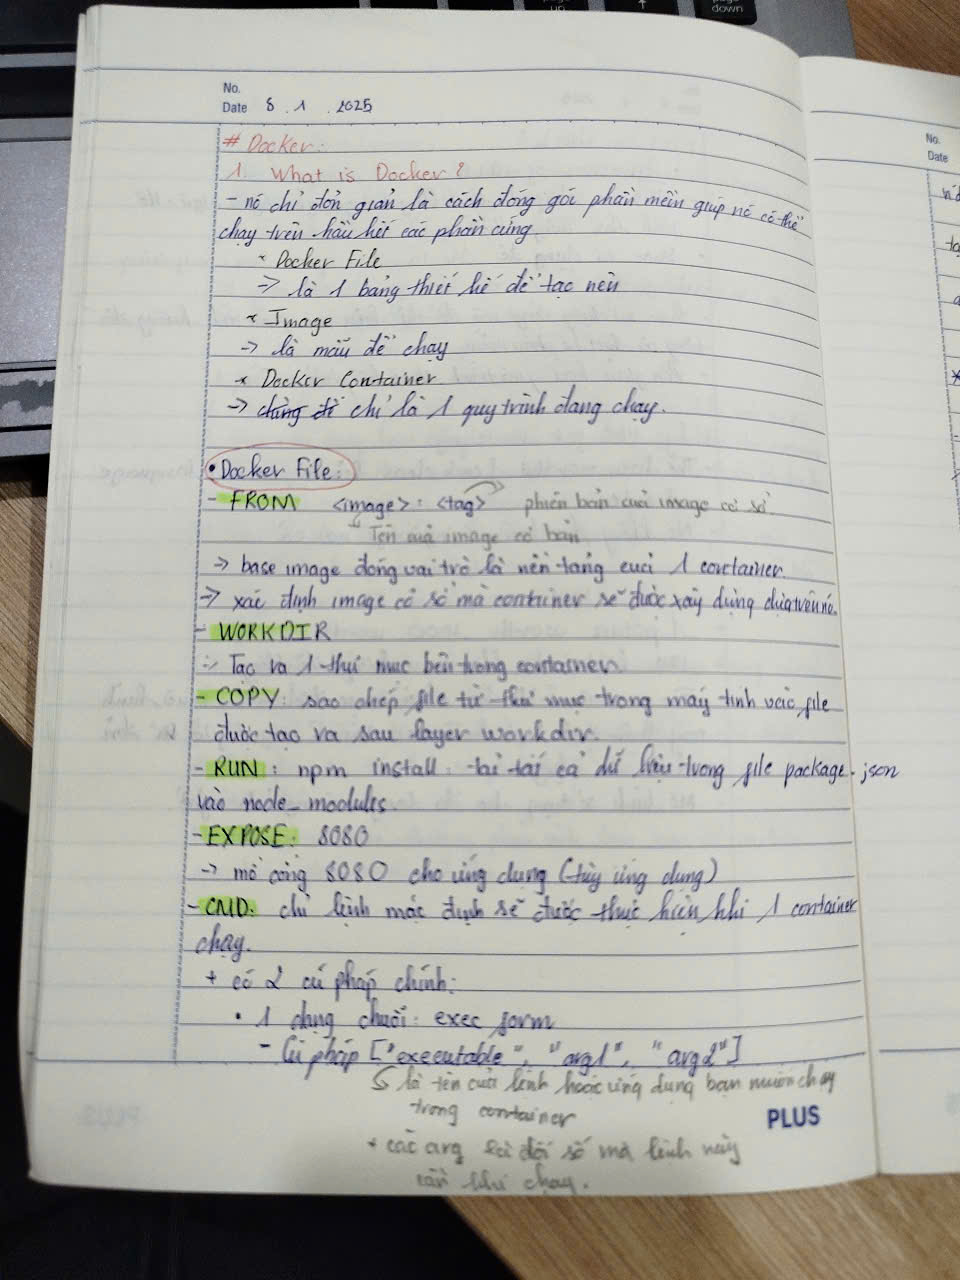 No.
Date 8 . 1 . 2025
# Docker:
1. What is Docker?
- nó chỉ đơn giản là cách đóng gói phần mềm giúp nó có thể
chạy trên hầu hết các phần cứng.
* Docker File
-> là 1 bảng thiết kế để tạo nên
* Image
-> là mẫu để chạy
* Docker Container
-> chỉ là 1 quy trình đang chạy.
• Docker File:
- FROM <image> : <tag> phiên bản của image cơ sở.
Tên của image cơ bản
-> base image đóng vai trò là nền tảng của 1 container.
-> xác định image cơ sở mà container sẽ được xây dựng dựa trên nó.
- WORKDIR
-> Tạo ra 1 thư mục bên trong container.
- COPY: sao chép file từ thư mục trong máy tính vào file
được tạo ra sau layer workdir.
- RUN: npm install: tải tất cả dữ liệu trong file package.json
vào node_modules
- EXPOSE: 8080
-> mở cổng 8080 cho ứng dụng (tùy ứng dụng)
- CMD: chỉ lệnh mặc định sẽ được thực hiện khi 1 container
chạy.
+ có 2 cú pháp chính:
• 1 dạng chuỗi: exec form
- Cú pháp ["executable", "arg1", "arg2"]
là tên của lệnh hoặc ứng dụng bạn muốn chạy
trong container
+ các arg là đối số mà lệnh này
cần khi chạy.
PLUS
No.
Date
up
down